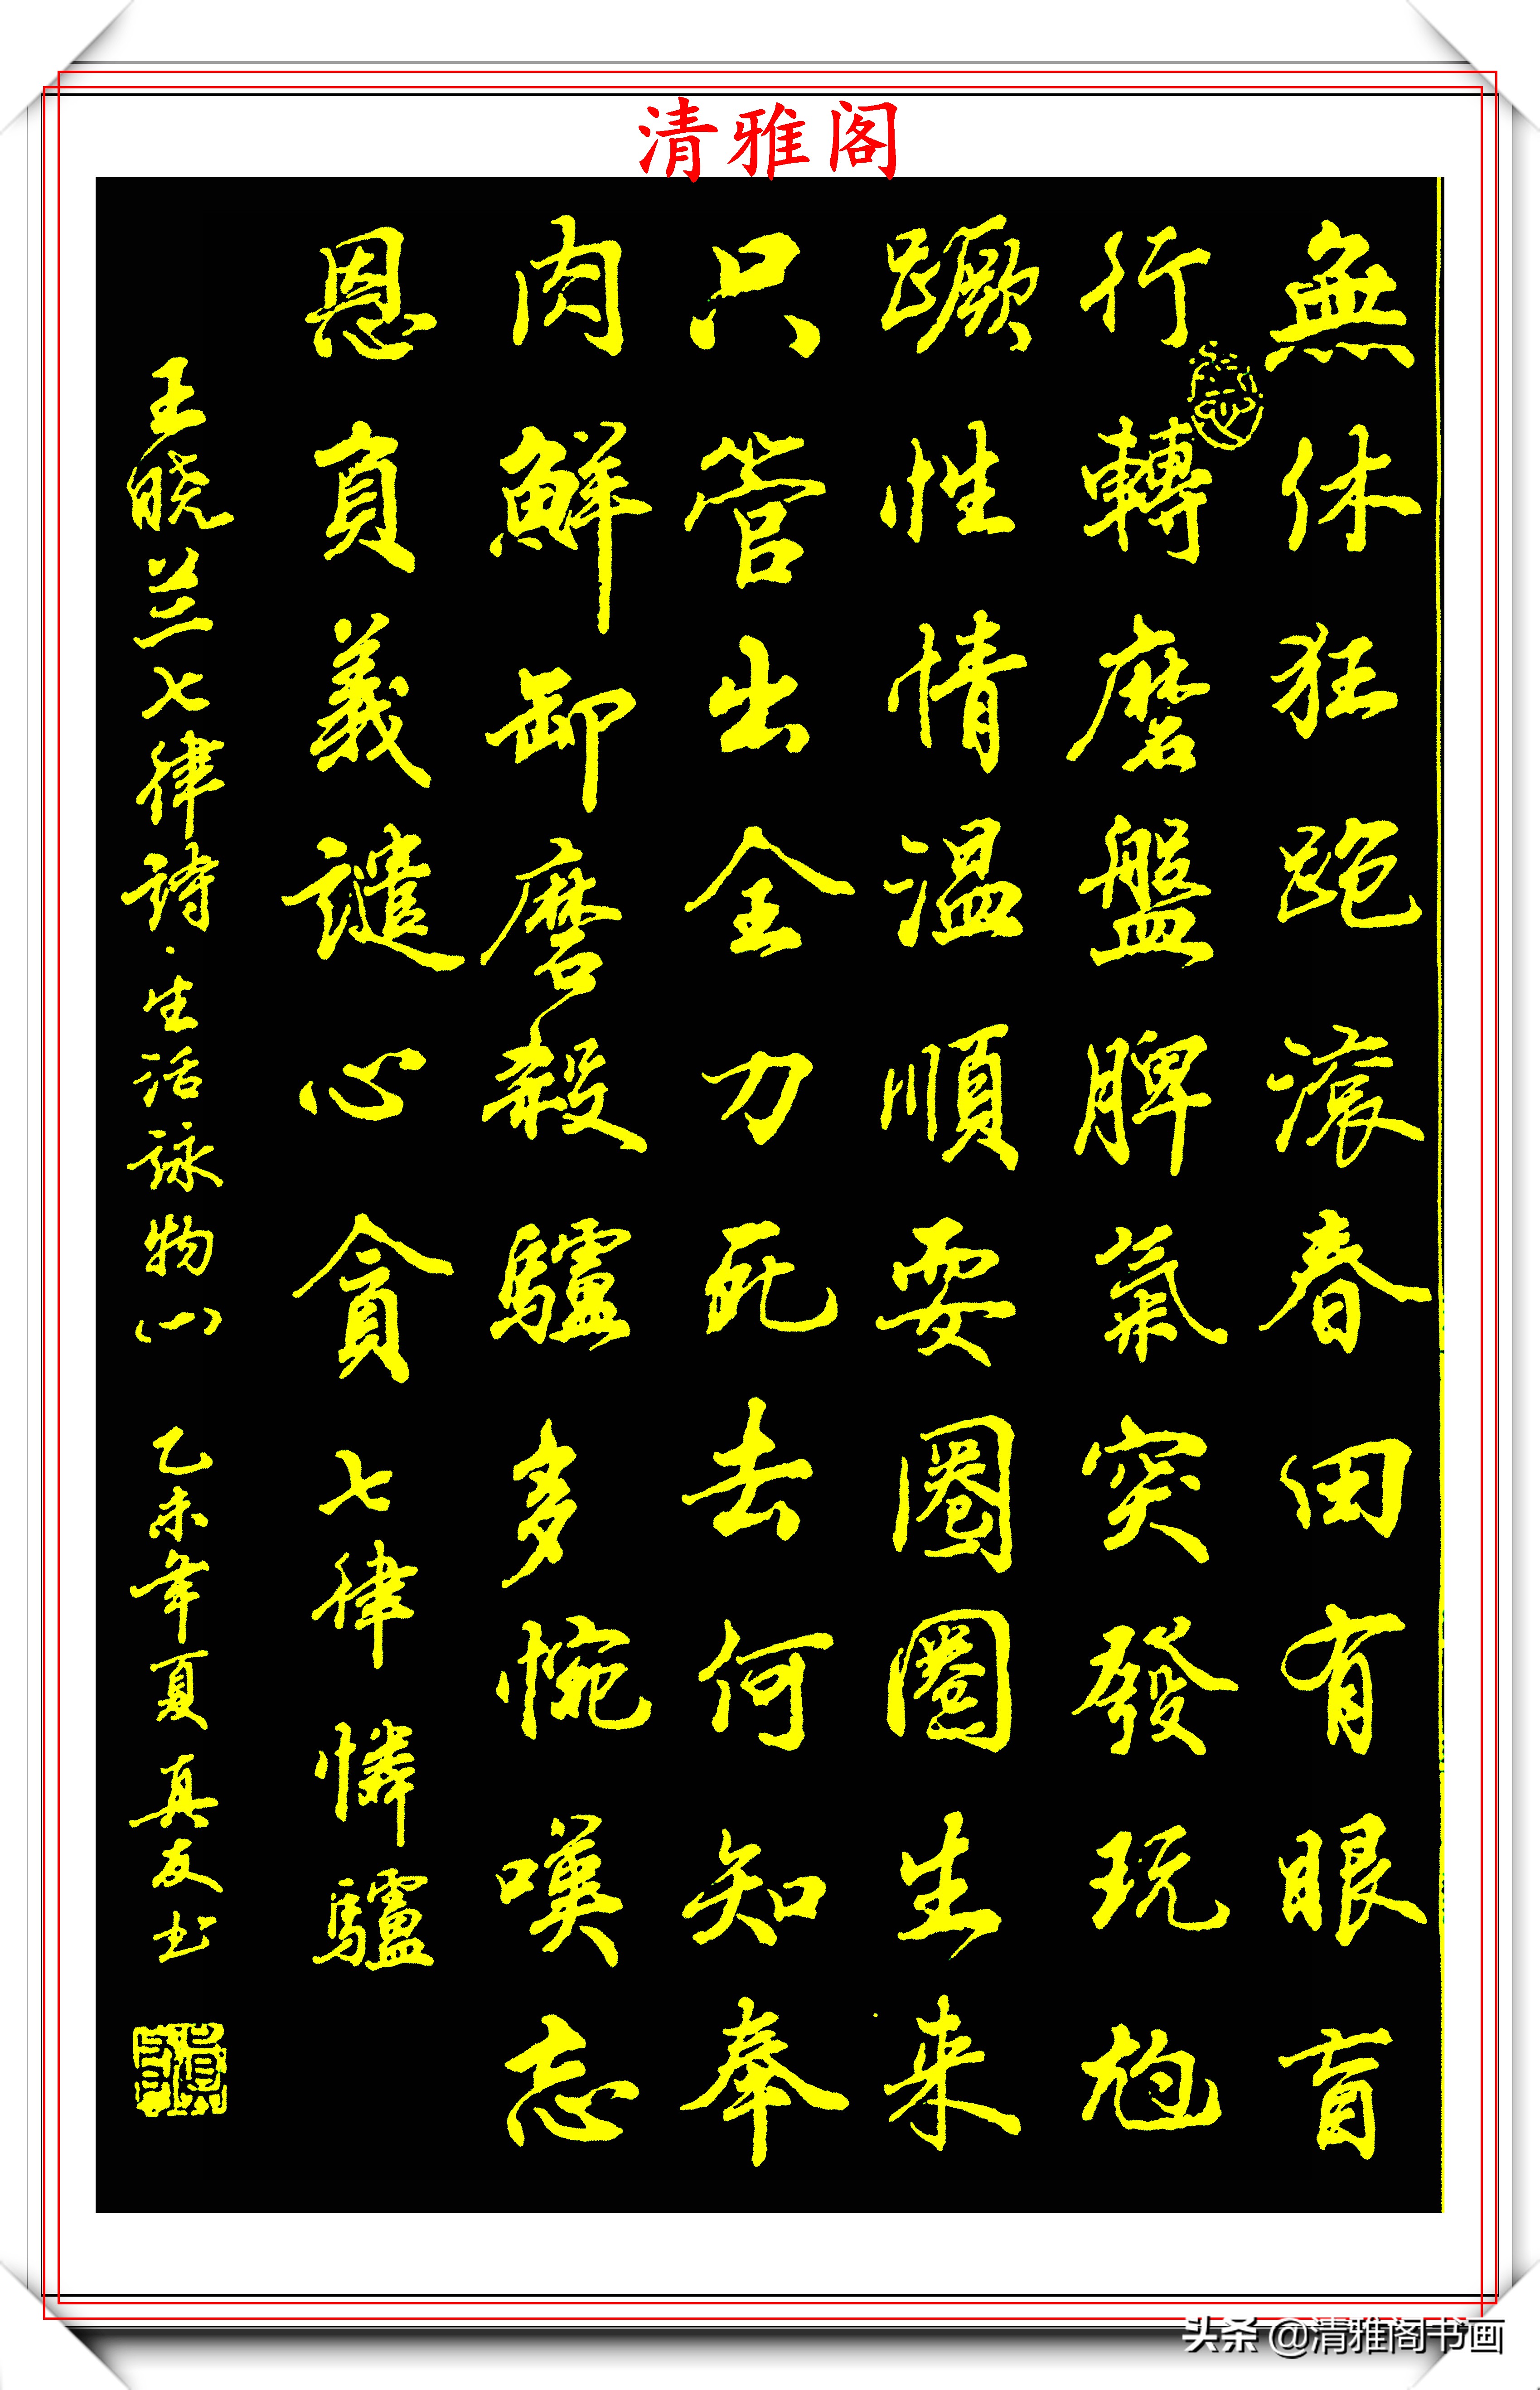 清雅阁
無休狂跑滾春田有眼盲
行轉磨盤脾氣突發玩尥
蹶性情温順耍圈圈生来
只管出全力死去何知奉
肉鮮卸磨殺驢多惋嘆忘
恩負義譴心貪 七律 憐驢
王晓兰七律詩·生活詠物(一) 乙未年夏真友书
头条 @清雅阁书画